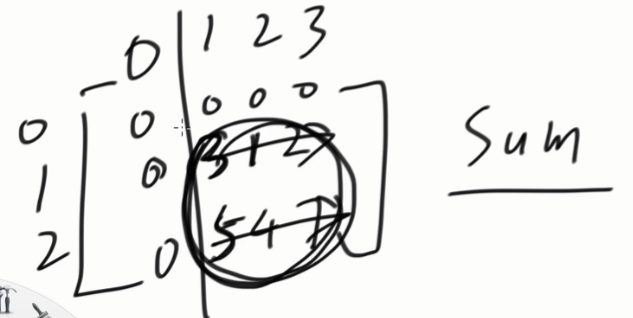 0 1 2 3
0 0 0 0 0
1 0 3 1 2
2 0 5 4 7
Sum